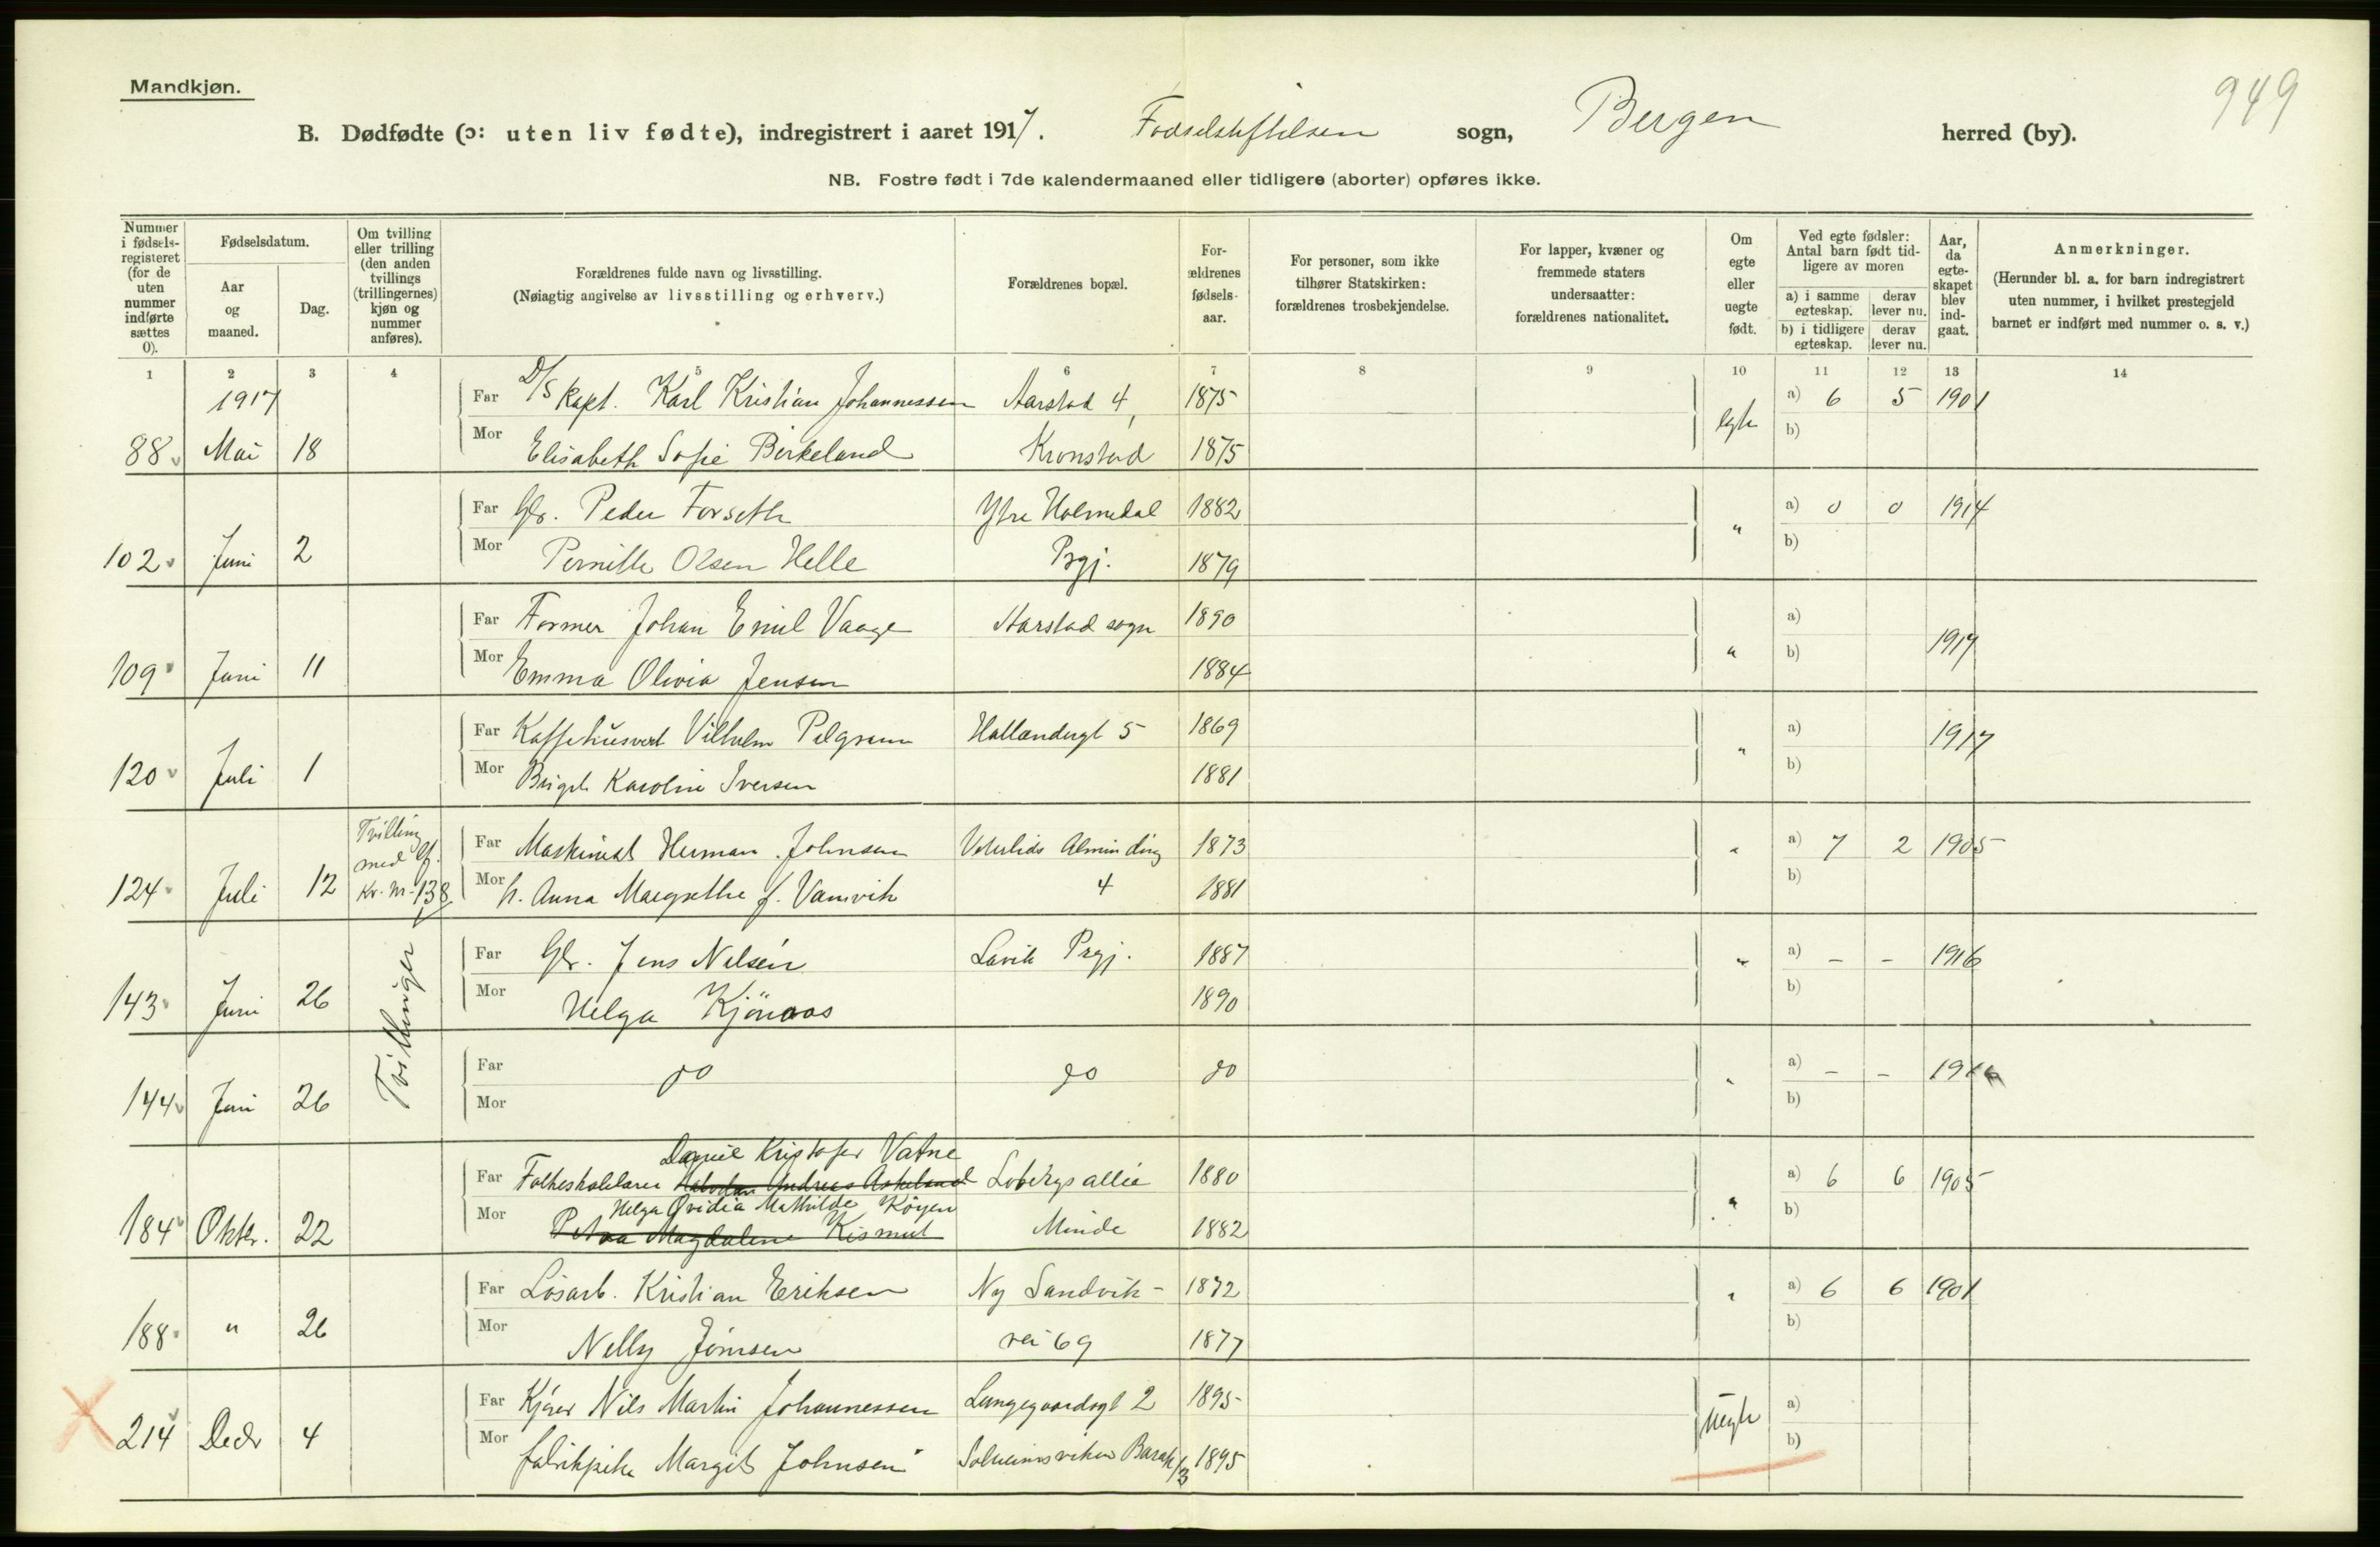 Mandkjøn.
949
B. Dødfødte (ɔ: uten liv fødte), indregistrert i aaret 1917. Fødselsstiftelsen sogn, Bergen herred (by).
NB. Fostre født i 7de kalendermaaned eller tidligere (aborter) opføres ikke.
Nummer i fødsels-registeret (for de uten nummer indførte sættes 0).
Fødselsdatum.
Aar og maaned.
Dag.
Om tvilling eller trilling (den anden tvillings (trillingernes) kjøn og nummer anføres).
Forældrenes fulde navn og livsstilling.
(Nøiagtig angivelse av livsstilling og erhverv.)
Forældrenes bopæl.
For-ældrenes fødsels-aar.
For personer, som ikke tilhører Statskirken: forældrenes trosbekjendelse.
For lapper, kvæner og fremmede staters undersaatter: forældrenes nationalitet.
Om egte eller uegte født.
Ved egte fødsler: Antal barn født tid-ligere av moren
a) i samme egteskap. derav lever nu.
b) i tidligere egteskap. derav lever nu.
Aar, da egte-skapet blev ind-gaat.
Anmerkninger.
(Herunder bl. a. for barn indregistrert uten nummer, i hvilket prestegjeld barnet er indført med nummer o. s. v.)
1 2 3 4 5 6 7 8 9 10 11 12 13 14
1917 Far D/S Kapt. Karl Kristian Johannessen Aarstad 4, 1875 egte a) 6 5 1901
88 Mai 18 Mor Elisabeth Sofie Birkeland Kronstad 1875 b)
Far Gbr. Peder Forseth Ytre Holmedal 1882 " a) 0 0 1914
102 Juni 2 Mor Pernille Olsen Helle Prgj. 1879 b)
Far Former Johan Emil Vaage Aarstad sogn 1890 " a) 1917
109 Juni 11 Mor Emma Olivia Jensen 1884 b)
Far Kaffehusvert Vilhelm Pelgram Hollendergt 5 1869 " a) 1917
120 Juli 1 Mor Birgit Karoline Iversen 1881 b)
Tvilling med lf. Kv. nr. 138
Far Maskinist Herman Johnsen Veterlids Alminding 1873 " a) 7 2 1905
124 Juli 12 Mor h. Anna Margrethe f. Vamvik 4 1881 b)
Tvillinger
Far Gbr. Jens Nelsen Lavik Prgj. 1887 " a) – – 1916
143 Juni 26 Mor Helga Kjönaas 1890 b)
144 Juni 26 Far do do do " a) – – 1916
Mor b)
Daniel Kristofer Vatne
Far Folkeskolelærer Andreas Askeland Løbergs allee 1880 " a) 6 6 1905
Helga Ovidia Mathilde Röyen
184 Oktbr. 22 Mor Petra Magdalene Kismul Minde 1882 b)
Far Løsarb. Kristian Eriksen Ny Sandvik- 1872 " a) 6 6 1901
188 " 26 Mor Nelly Jönsen vei 69 1877 b)
Far Kjører Nils Martin Johannessen Lungegaardsgt 2 1895 uegte a)
214 Decbr 4 Mor fabrikpike Margit Johnsen Solheimsviken Barak 1/3 1895 b)